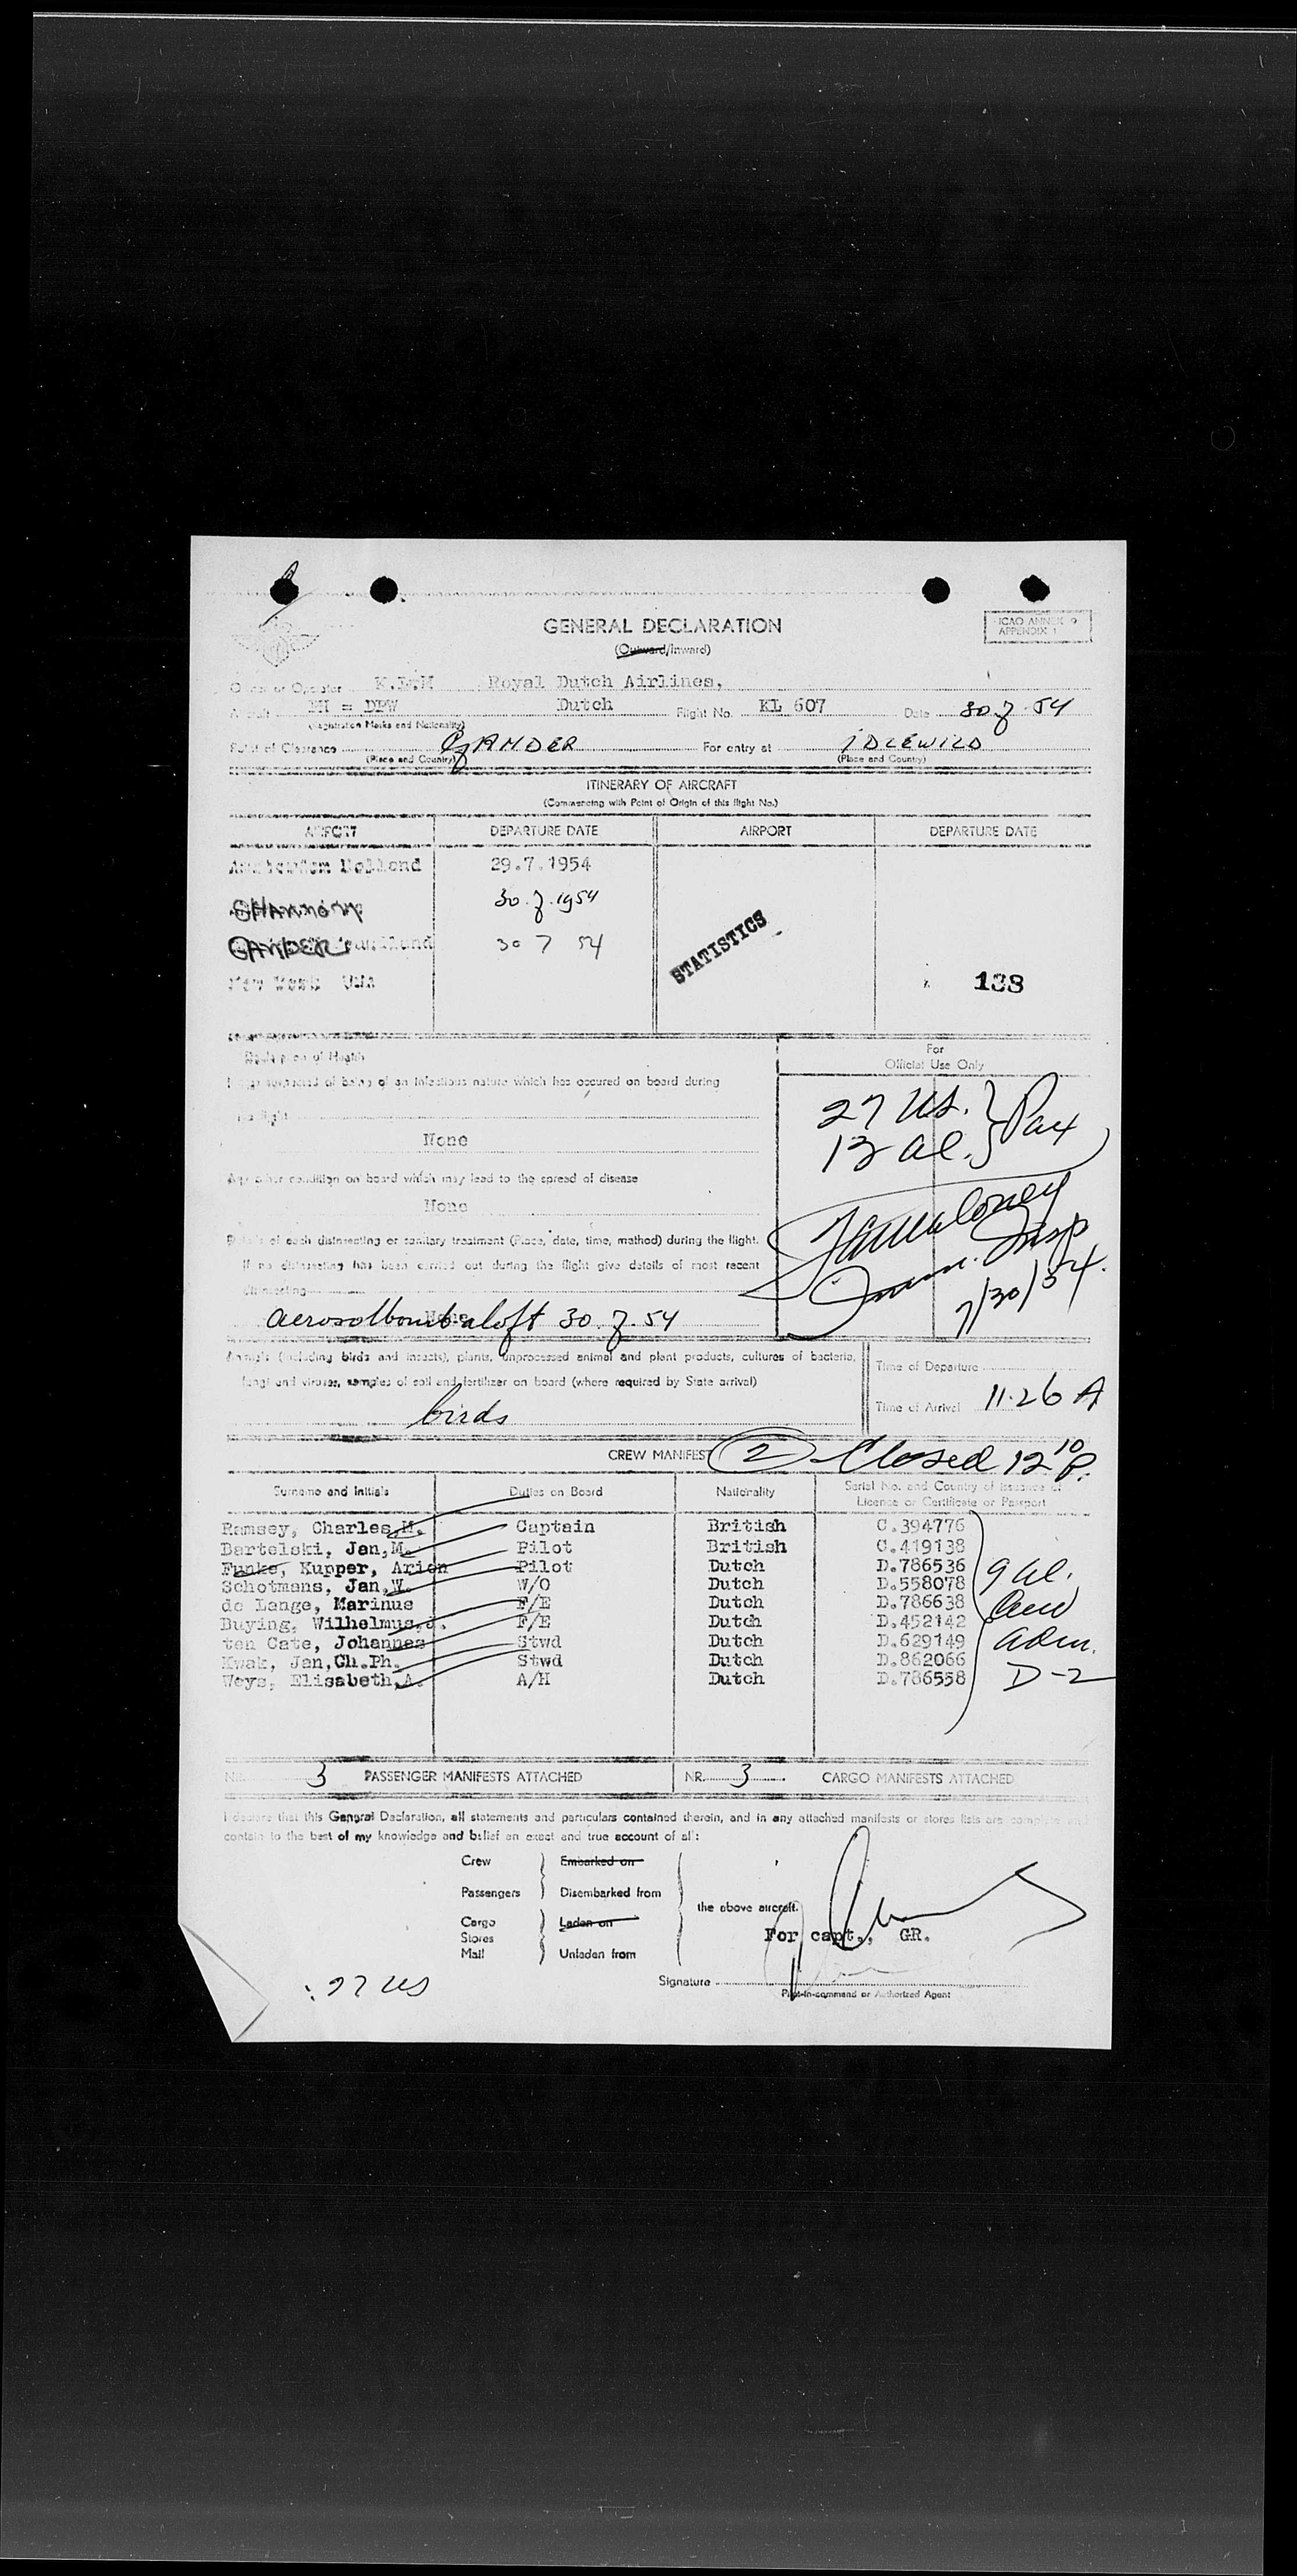 GENERAL DECLARATION
ICAO ANNEX 9
APPENDIX 1
(Outward/Inward)
Owner or Operator K.L.M Royal Dutch Airlines.
Aircraft PH = DPW Dutch Flight No. KL 607 Date 30.7.54
(Registration Marks and Nationality)
Point of Clearance GANDER For entry at IDLEWILD
(Place and Country) (Place and Country)
ITINERARY OF AIRCRAFT
(Commencing with Point of Origin of this flight No.)
AIRPORT DEPARTURE DATE AIRPORT DEPARTURE DATE
Amsterdam Holland 29.7.1954
SHANNON 30.7.1954
GANDER 30 7 54
STATISTICS
New York USA
188
Declaration of Health
For
Official Use Only
suspected of being of an infectious nature which has occured on board during
the flight
27 US. } Pax
13 al.
None
Any other condition on board which may lead to the spread of disease
None
Details of each disinsecting or sanitary treatment (Place, date, time, method) during the flight.
If no disinsecting has been carried out during the flight give details of most recent
disinsecting
Imm. Insp
7/30/54.
None
aerosolbomb aloft 30.7.54
Animals (including birds and insects), plants, unprocessed animal and plant products, cultures of bacteria,
fungi and viruses, samples of soil and fertilizer on board (where required by State arrival)
birds
Time of Departure
Time of Arrival 11.26 A
CREW MANIFEST (2) - Closed 12 10 P.
Surname and Initials Duties on Board Nationality Serial No. and Country of Issuance of
Licence or Certificate or Passport
Ramsey, Charles,M. Captain British C.394776
Bartelski, Jan,M. Pilot British C.419138
Funke, Kupper, Arien Pilot Dutch D.786536
Schotmans, Jan,W. W/O Dutch D.558078
de Lange, Marinus F/E Dutch D.786638
Buying, Wilhelmus,J. F/E Dutch D.452142
ten Cate, Johannes Stwd Dutch D.629149
Kwak, Jan,Ch.Ph. Stwd Dutch D.862066
Weys, Elisabeth,A. A/H Dutch D.786558
9 al.
Crew
adm.
D-2
NR. 3 PASSENGER MANIFESTS ATTACHED NR. 3 CARGO MANIFESTS ATTACHED
I declare that this General Declaration, all statements and particulars contained therein, and in any attached manifests or stores lists are complete and
contain to the best of my knowledge and belief an exact and true account of all:
Crew Embarked on
Passengers Disembarked from
the above aircraft.
Cargo Laden on
Stores
Mail Unladen from
For capt., GR.
Signature
Pilot-in-command or Authorized Agent
: 27 US